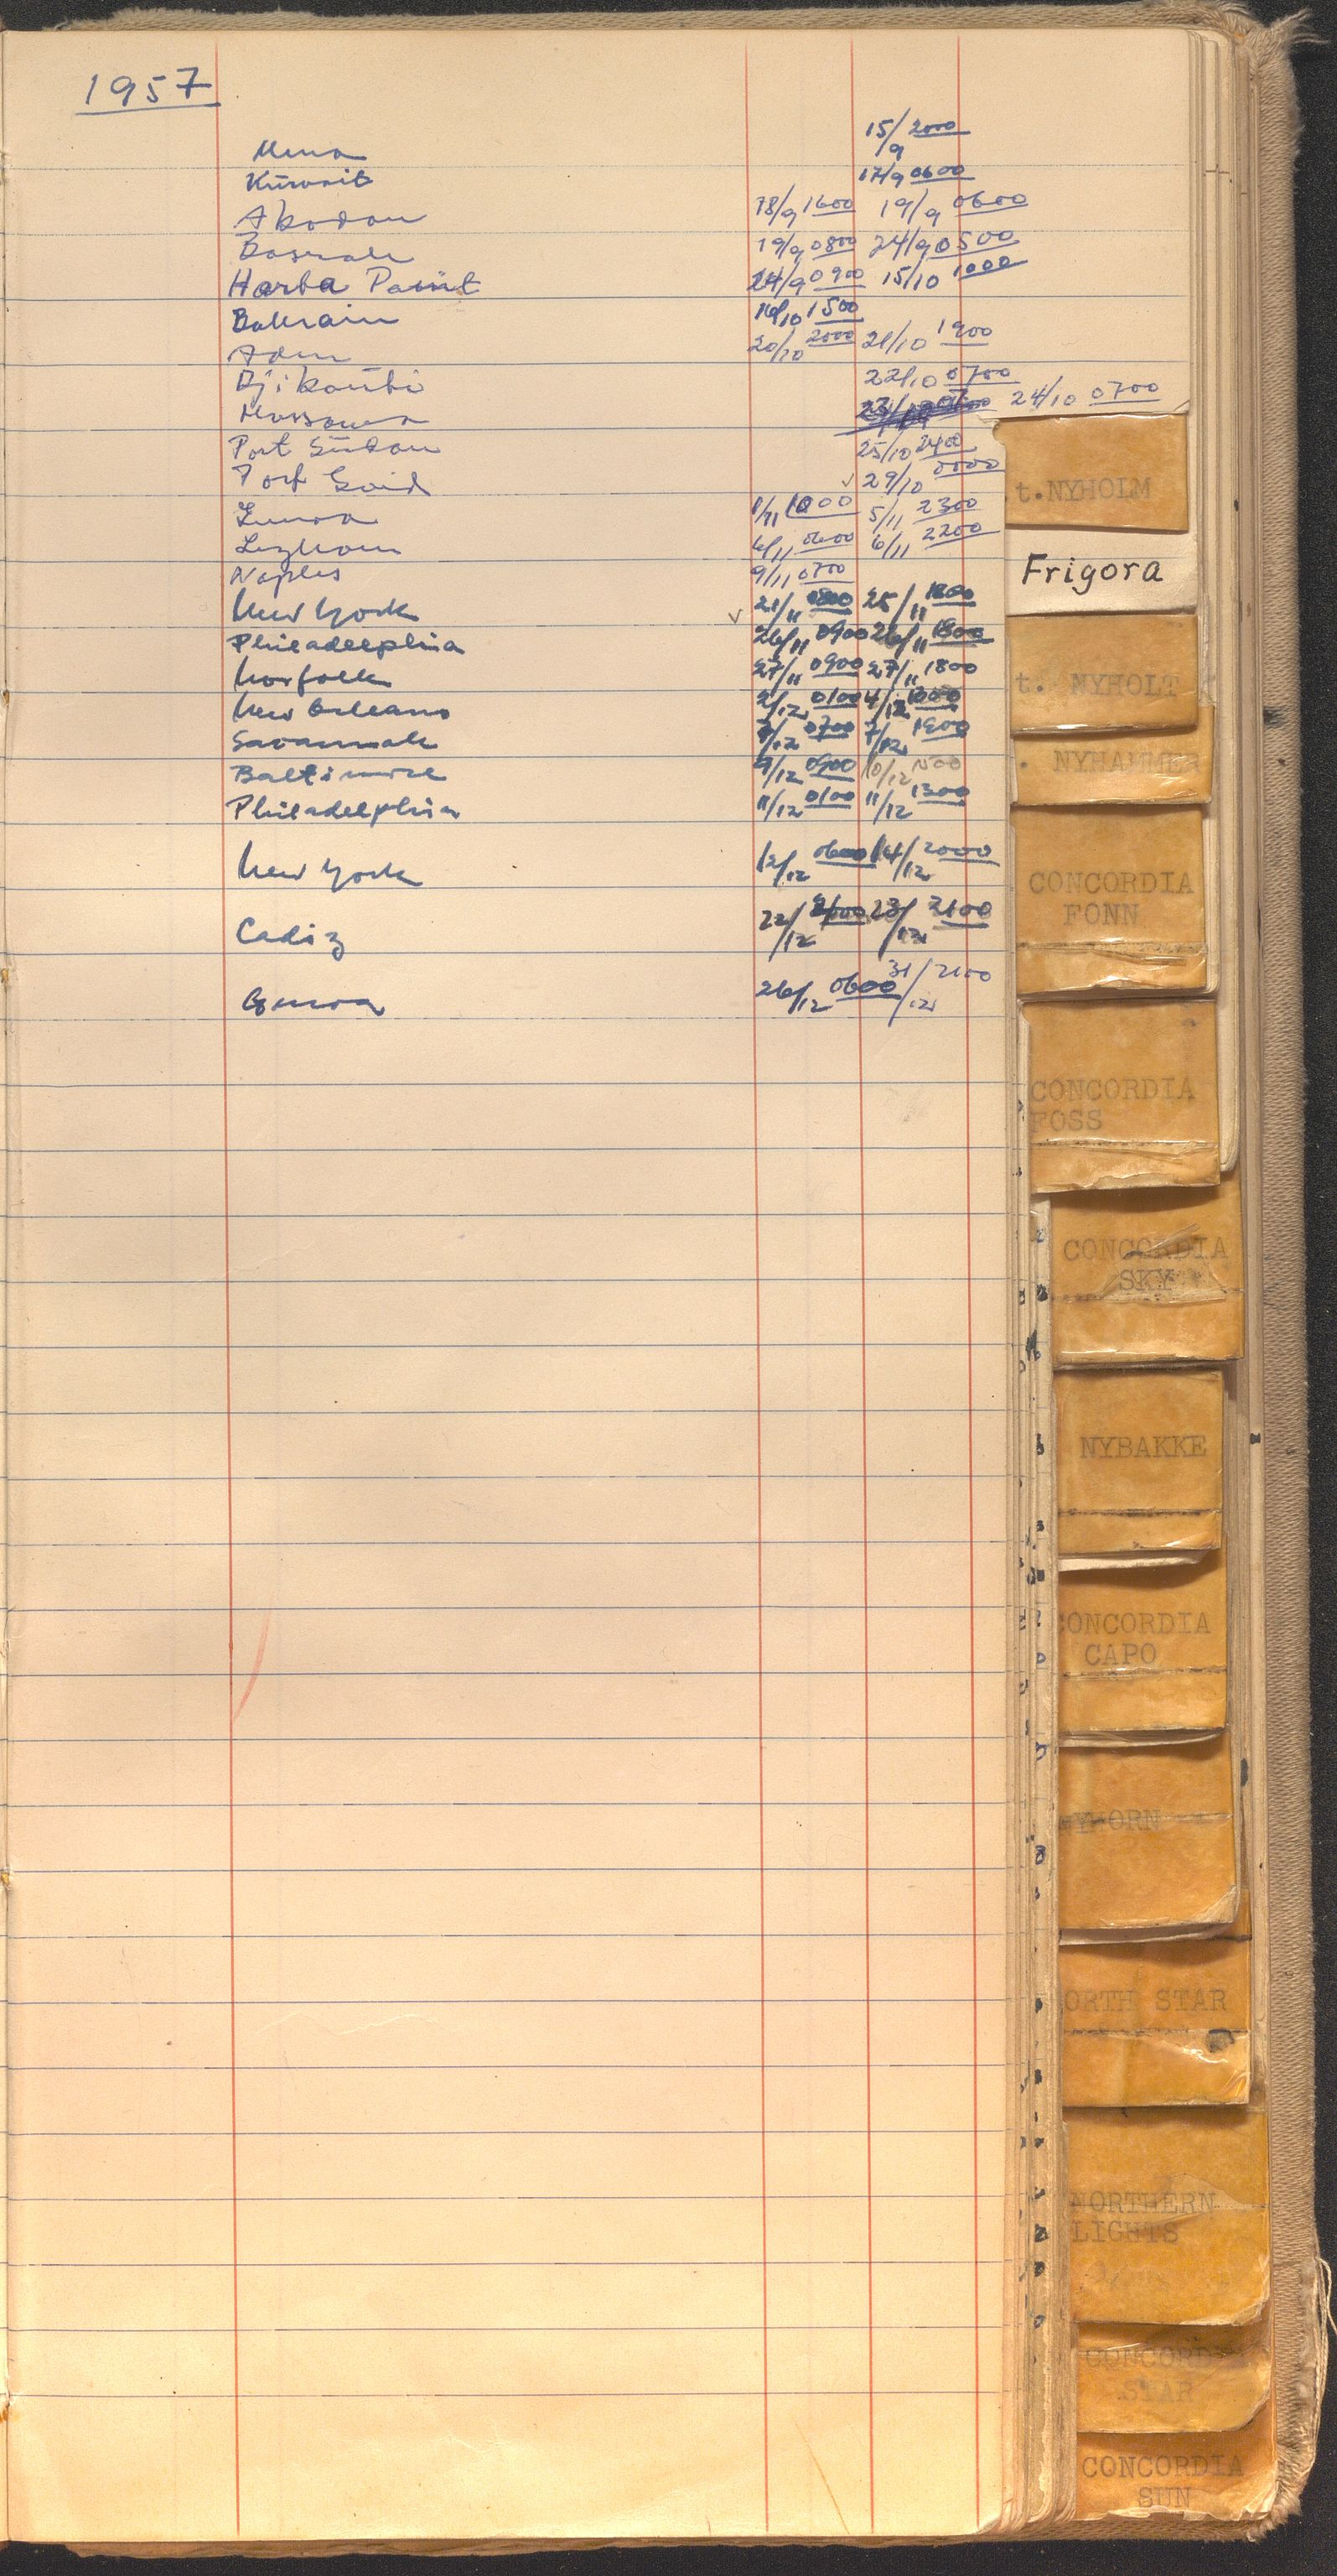 1957
Mena 15/9 2000
Kuwait 17/9 0600
Abadan 18/9 1600 19/9 0600
Basrah 19/9 0800 24/9 0500
Harba Point 24/9 0900 15/10 1000
Bahrain 16/10 1500
Aden 20/10 2000 21/10 1900
Djibouti 22/10 0700
Massawa 24/10 0700
Port Sudan 25/10 2400
Port Said 29/10
Genoa 1/11 1000 5/11 2300
Leghorn 6/11 0600 6/11 2200
Naples 9/11 0700
New York 21/11 0800 25/11 1800
Philadelphia 26/11 0900 26/11 1800
Norfolk 27/11 0900 27/11 1800
New Orleans 2/12 0100 4/12 1800
Savannah 7/12 0700 7/12 1900
Baltimore 9/12 0900 10/12 1500
Philadelphia 11/12 0100 11/12 1300
New York 12/12 0600 14/12 2000
Cadiz 22/12 23/12 2100
Genoa 26/12 0600 31/12 2100
t. NYHOLM
Frigora
t. NYHOLT
. NYHAMMER
CONCORDIA
FONN
CONCORDIA
FOSS
CONCORDIA
SKY
NYBAKKE
CONCORDIA
CAPO
NYHORN
ORTH STAR
NORTHERN
LIGHTS
CONCORD
STAR
CONCORDIA
SUN